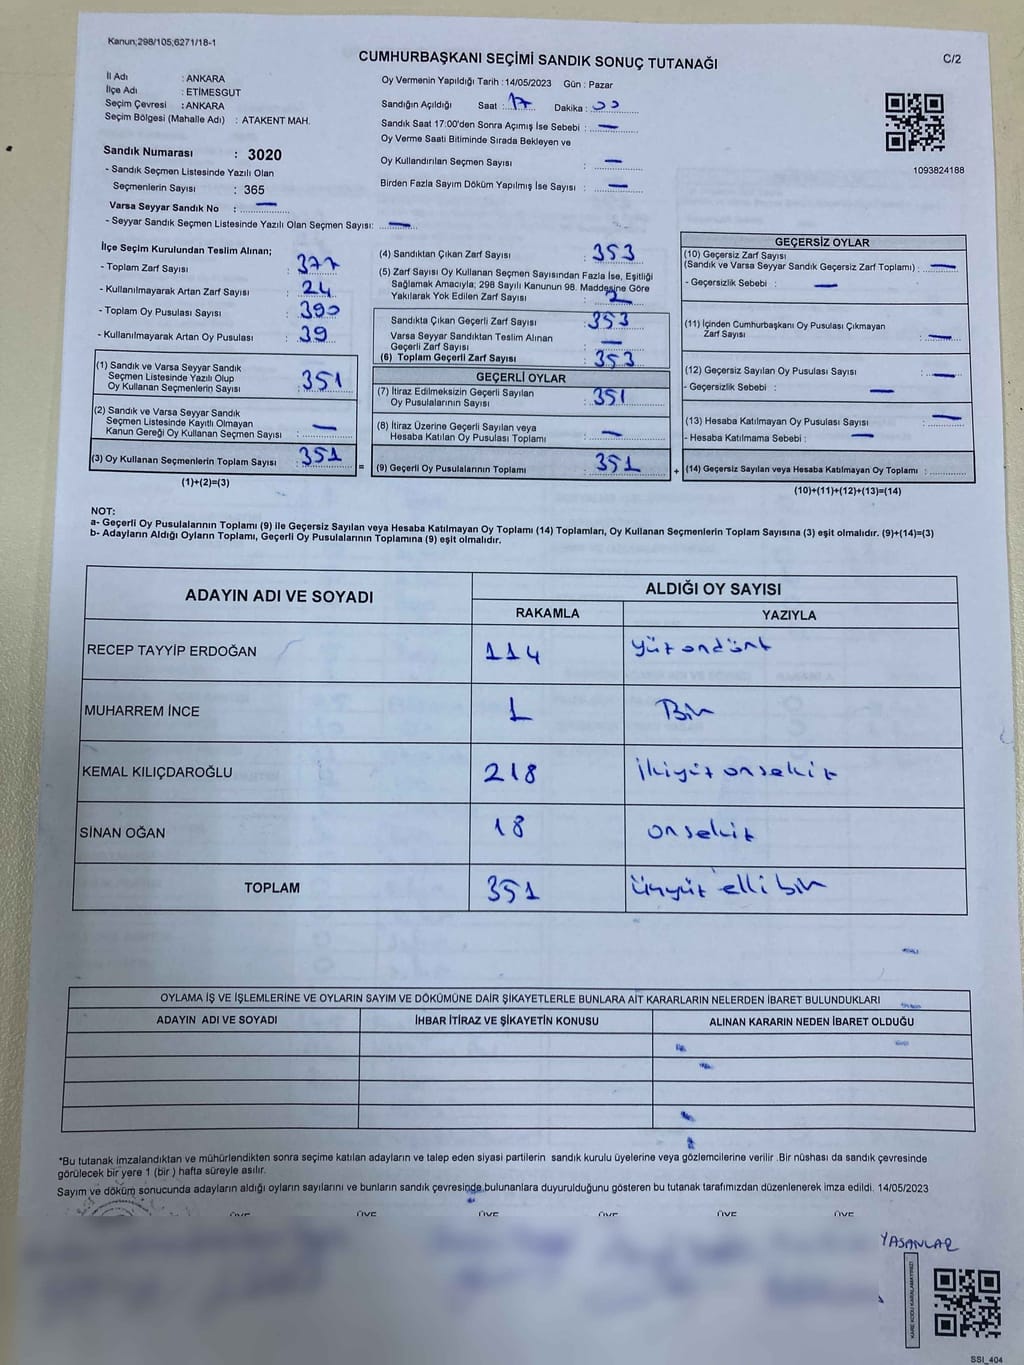 Kanun;298/105;6271/18-1
CUMHURBAŞKANI SEÇİMİ SANDIK SONUÇ TUTANAĞI
C/2
İl Adı : ANKARA
İlçe Adı : ETİMESGUT
Seçim Çevresi : ANKARA
Seçim Bölgesi (Mahalle Adı) : ATAKENT MAH.
Oy Vermenin Yapıldığı Tarih : 14/05/2023 Gün : Pazar
Sandığın Açıldığı Saat : 17 Dakika : 00
Sandık Saat 17:00'den Sonra Açımış İse Sebebi : —
Oy Verme Saati Bitiminde Sırada Bekleyen ve
Oy Kullandırılan Seçmen Sayısı : —
Birden Fazla Sayım Döküm Yapılmış İse Sayısı : —
1093824188
Sandık Numarası : 3020
- Sandık Seçmen Listesinde Yazılı Olan
Seçmenlerin Sayısı : 365
Varsa Seyyar Sandık No : —
- Seyyar Sandık Seçmen Listesinde Yazılı Olan Seçmen Sayısı: —
İlçe Seçim Kurulundan Teslim Alınan;
- Toplam Zarf Sayısı : 377
- Kullanılmayarak Artan Zarf Sayısı : 24
- Toplam Oy Pusulası Sayısı : 390
- Kullanılmayarak Artan Oy Pusulası : 39
(1) Sandık ve Varsa Seyyar Sandık
Seçmen Listesinde Yazılı Olup
Oy Kullanan Seçmenlerin Sayısı : 351
(2) Sandık ve Varsa Seyyar Sandık
Seçmen Listesinde Kayıtlı Olmayan
Kanun Gereği Oy Kullanan Seçmen Sayısı : —
(3) Oy Kullanan Seçmenlerin Toplam Sayısı : 351
(1)+(2)=(3)
(4) Sandıktan Çıkan Zarf Sayısı : 353
(5) Zarf Sayısı Oy Kullanan Seçmen Sayısından Fazla İse, Eşitliği
Sağlamak Amacıyla; 298 Sayılı Kanunun 98. Maddesine Göre
Yakılarak Yok Edilen Zarf Sayısı : 2
Sandıkta Çıkan Geçerli Zarf Sayısı : 353
Varsa Seyyar Sandıktan Teslim Alınan
Geçerli Zarf Sayısı : —
(6) Toplam Geçerli Zarf Sayısı : 353
GEÇERLİ OYLAR
(7) İtiraz Edilmeksizin Geçerli Sayılan
Oy Pusulalarının Sayısı : 351
(8) İtiraz Üzerine Geçerli Sayılan veya
Hesaba Katılan Oy Pusulası Toplamı : —
= (9) Geçerli Oy Pusulalarının Toplamı : 351
GEÇERSİZ OYLAR
(10) Geçersiz Zarf Sayısı
(Sandık ve Varsa Seyyar Sandık Geçersiz Zarf Toplamı) : —
- Geçersizlik Sebebi : —
(11) İçinden Cumhurbaşkanı Oy Pusulası Çıkmayan
Zarf Sayısı : —
(12) Geçersiz Sayılan Oy Pusulası Sayısı : —
- Geçersizlik Sebebi : —
(13) Hesaba Katılmayan Oy Pusulası Sayısı : —
- Hesaba Katılmama Sebebi : —
+ (14) Geçersiz Sayılan veya Hesaba Katılmayan Oy Toplamı :
(10)+(11)+(12)+(13)=(14)
NOT:
a- Geçerli Oy Pusulalarının Toplamı (9) ile Geçersiz Sayılan veya Hesaba Katılmayan Oy Toplamı (14) Toplamları, Oy Kullanan Seçmenlerin Toplam Sayısına (3) eşit olmalıdır. (9)+(14)=(3)
b- Adayların Aldığı Oyların Toplamı, Geçerli Oy Pusulalarının Toplamına (9) eşit olmalıdır.
ADAYIN ADI VE SOYADI ALDIĞI OY SAYISI
RAKAMLA YAZIYLA
RECEP TAYYİP ERDOĞAN 114 yüzondört
MUHARREM İNCE 1 Bir
KEMAL KILIÇDAROĞLU 218 ikiyüz onsekiz
SİNAN OĞAN 18 onsekiz
TOPLAM 351 üçyüz elli bir
OYLAMA İŞ VE İŞLEMLERİNE VE OYLARIN SAYIM VE DÖKÜMÜNE DAİR ŞİKAYETLERLE BUNLARA AİT KARARLARIN NELERDEN İBARET BULUNDUKLARI
ADAYIN ADI VE SOYADI İHBAR İTİRAZ VE ŞİKAYETİN KONUSU ALINAN KARARIN NEDEN İBARET OLDUĞU
*Bu tutanak imzalandıktan ve mühürlendikten sonra seçime katılan adayların ve talep eden siyasi partilerin sandık kurulu üyelerine veya gözlemcilerine verilir .Bir nüshası da sandık çevresinde
görülecek bir yere 1 (bir ) hafta süreyle asılır.
Sayım ve döküm sonucunda adayların aldığı oyların sayılarını ve bunların sandık çevresinde bulunanlara duyurulduğunu gösteren bu tutanak tarafımızdan düzenlenerek imza edildi. 14/05/2023
ÜYE ÜYE ÜYE ÜYE ÜYE
YASANLAR
KARE KODU KARALAMAYINIZ!
SSI_404